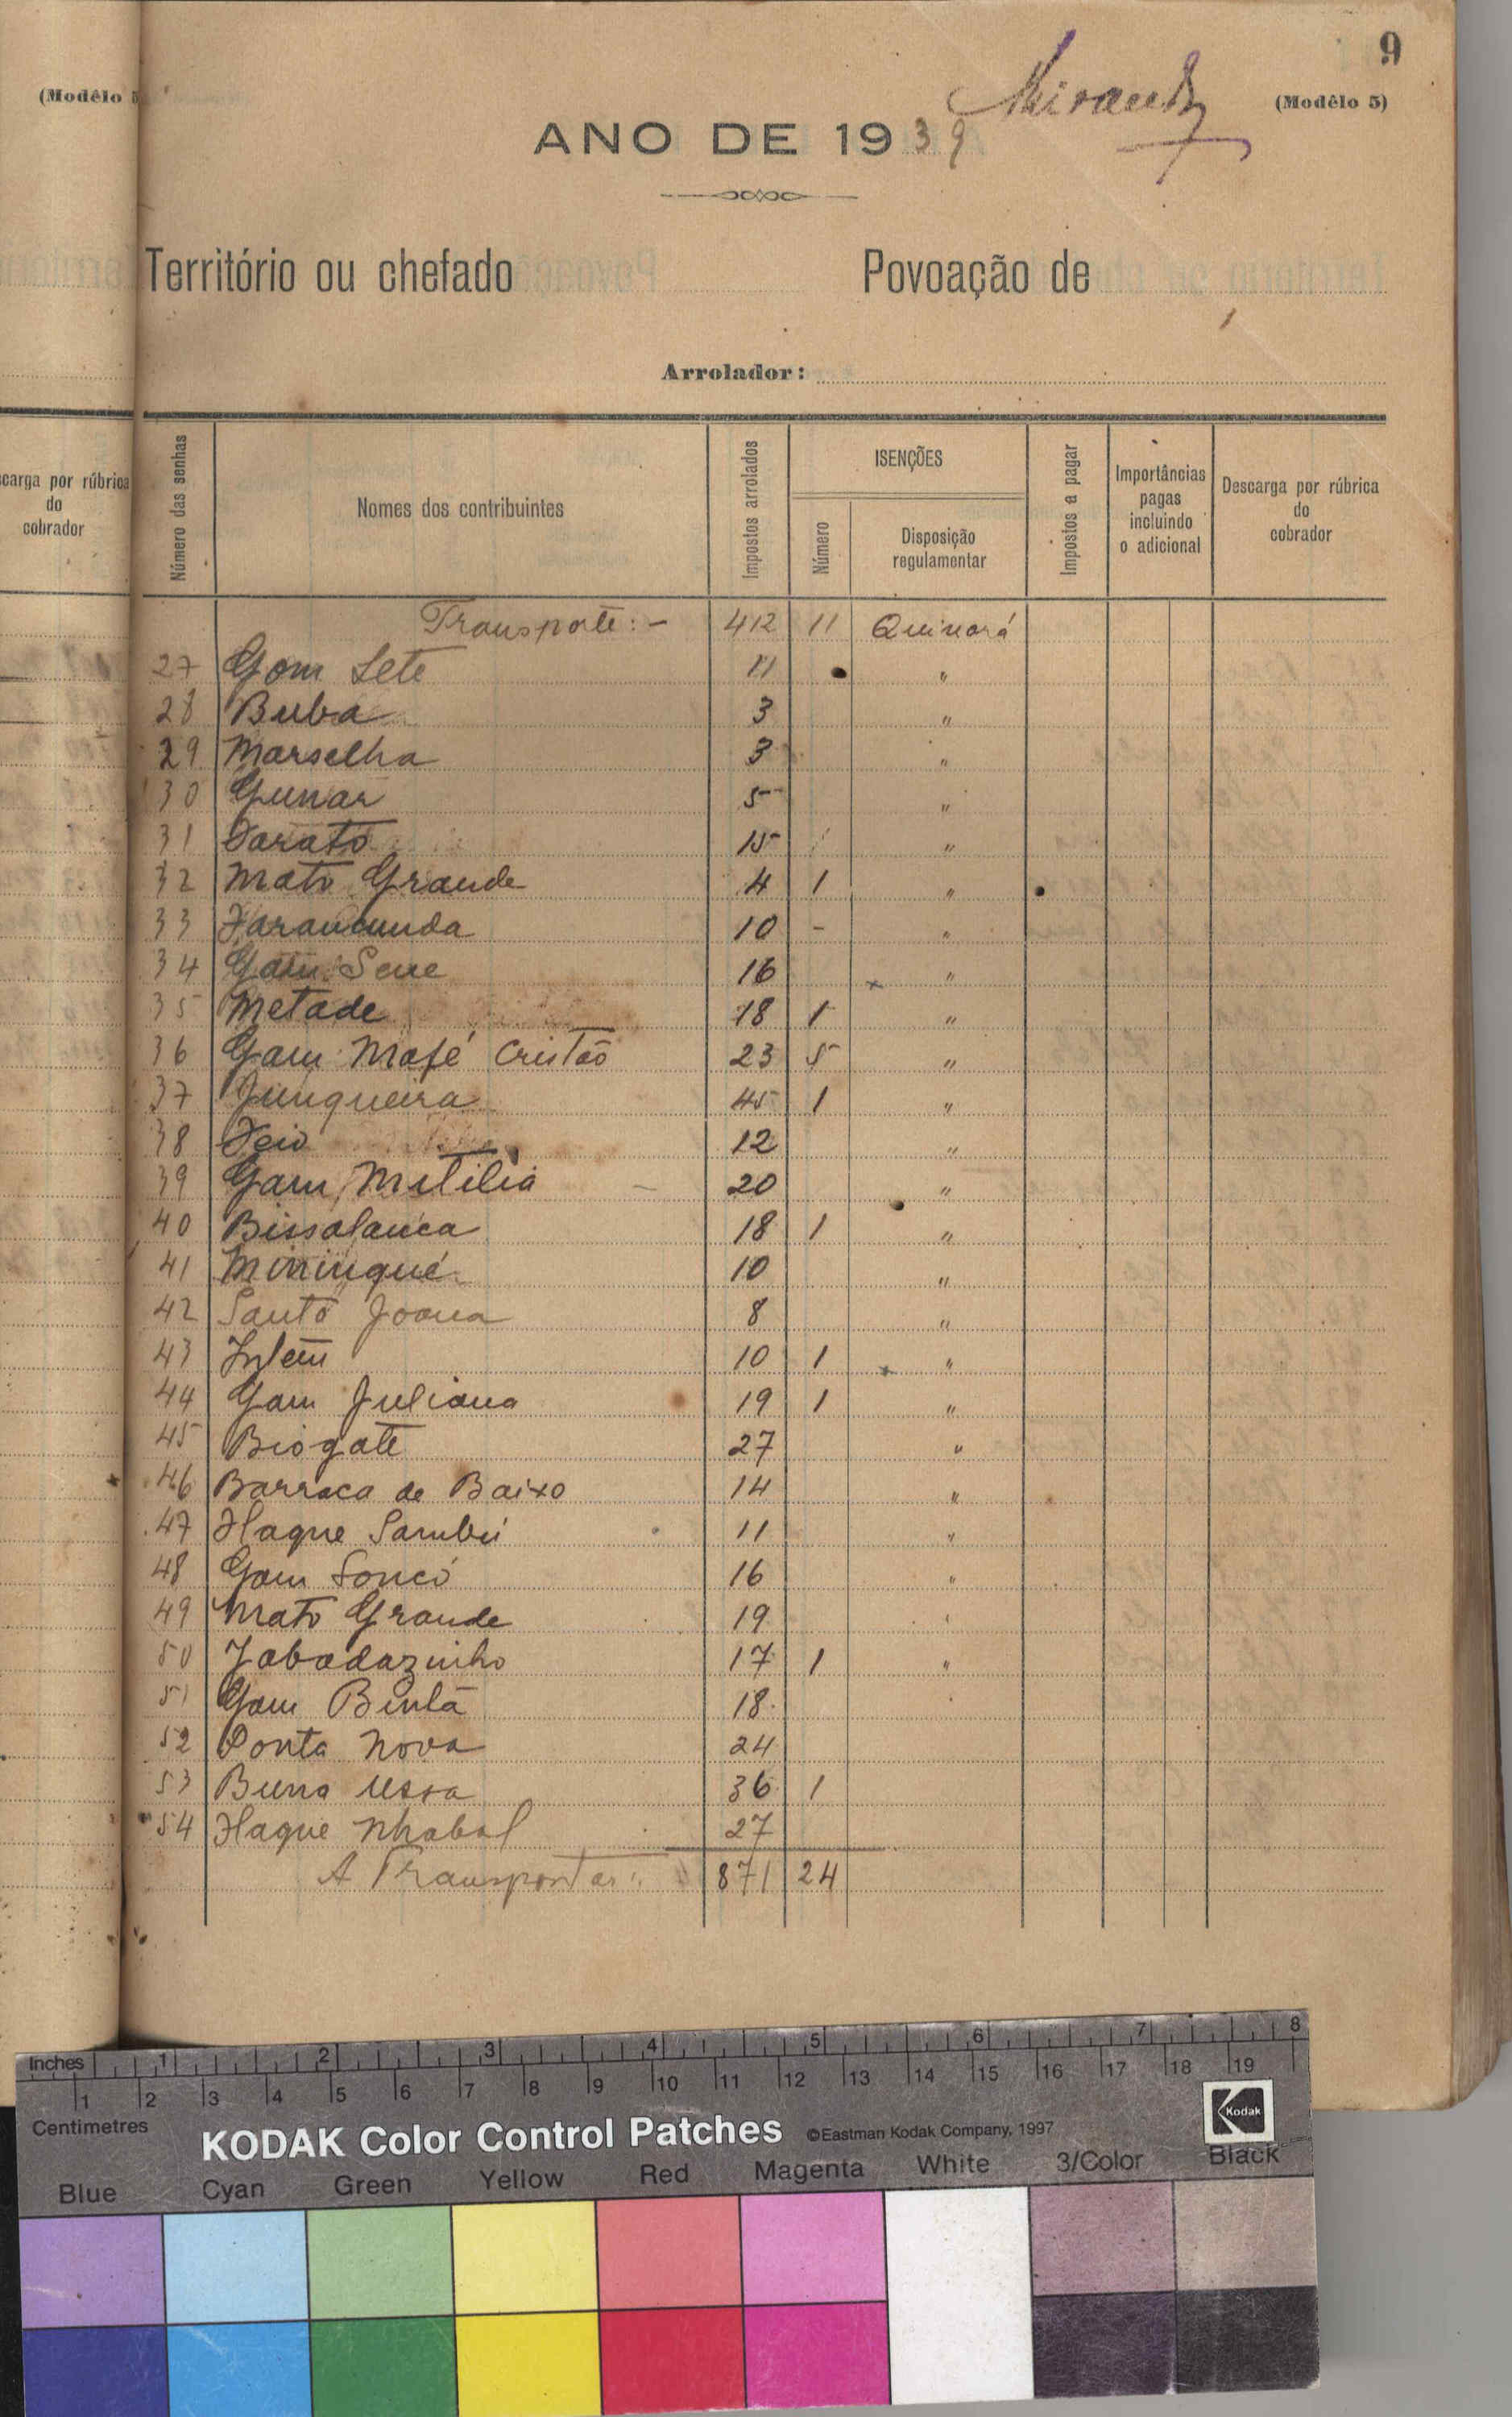 9
(Modêlo 5)
(Modêlo 5)
Mirandª
ANO DE 1939
Território ou chefado Povoação de
Arrolador:
scarga por rúbrica
do
cobrador
Número das senhas
Nomes dos contribuintes
Impostos arrolados
ISENÇÕES
Número
Disposição
regulamentar
Impostos a pagar
Importâncias
pagas
incluindo
o adicional
Descarga por rúbrica
do
cobrador
Transporte:- 412 11 Quinará
27 Gam Sete 11 "
28 Buba 3 "
29 Marselha 3 "
30 Gunar 5 "
31 Farato 15 "
32 Mato Grande 4 1 "
33 10 - "
34 Gam Sene 16 "
35 Metade 18 1 "
36 Gam Mafé Cristão 23 5 "
37 Junqueira 45 1 "
38 Feio 12 "
39 Gam Mitilia 20 "
40 Bissalanca 18 1 "
41 Mininqué 10 "
42 Santo Joana 8 "
43 10 1 "
44 Gam Juliana 19 1 "
45 Biogate 27 "
46 Barraca de Baixo 14 "
47 Flaque Sambú 11 "
48 Gam Soncó 16 "
49 Mato Grande 19 "
50 Jabadazinho 17 1 "
51 Gam Bintã 18 "
52 Ponta Nova 24
53 36 1
54 Flaque Nhabal 27
A Transportar: 871 24
Inches 1 2 3 4 5 6 7 8
1 2 3 4 5 6 7 8 9 10 11 12 13 14 15 16 17 18 19
Centimetres
KODAK Color Control Patches ©Eastman Kodak Company, 1997 Kodak
Blue Cyan Green Yellow Red Magenta White 3/Color Black